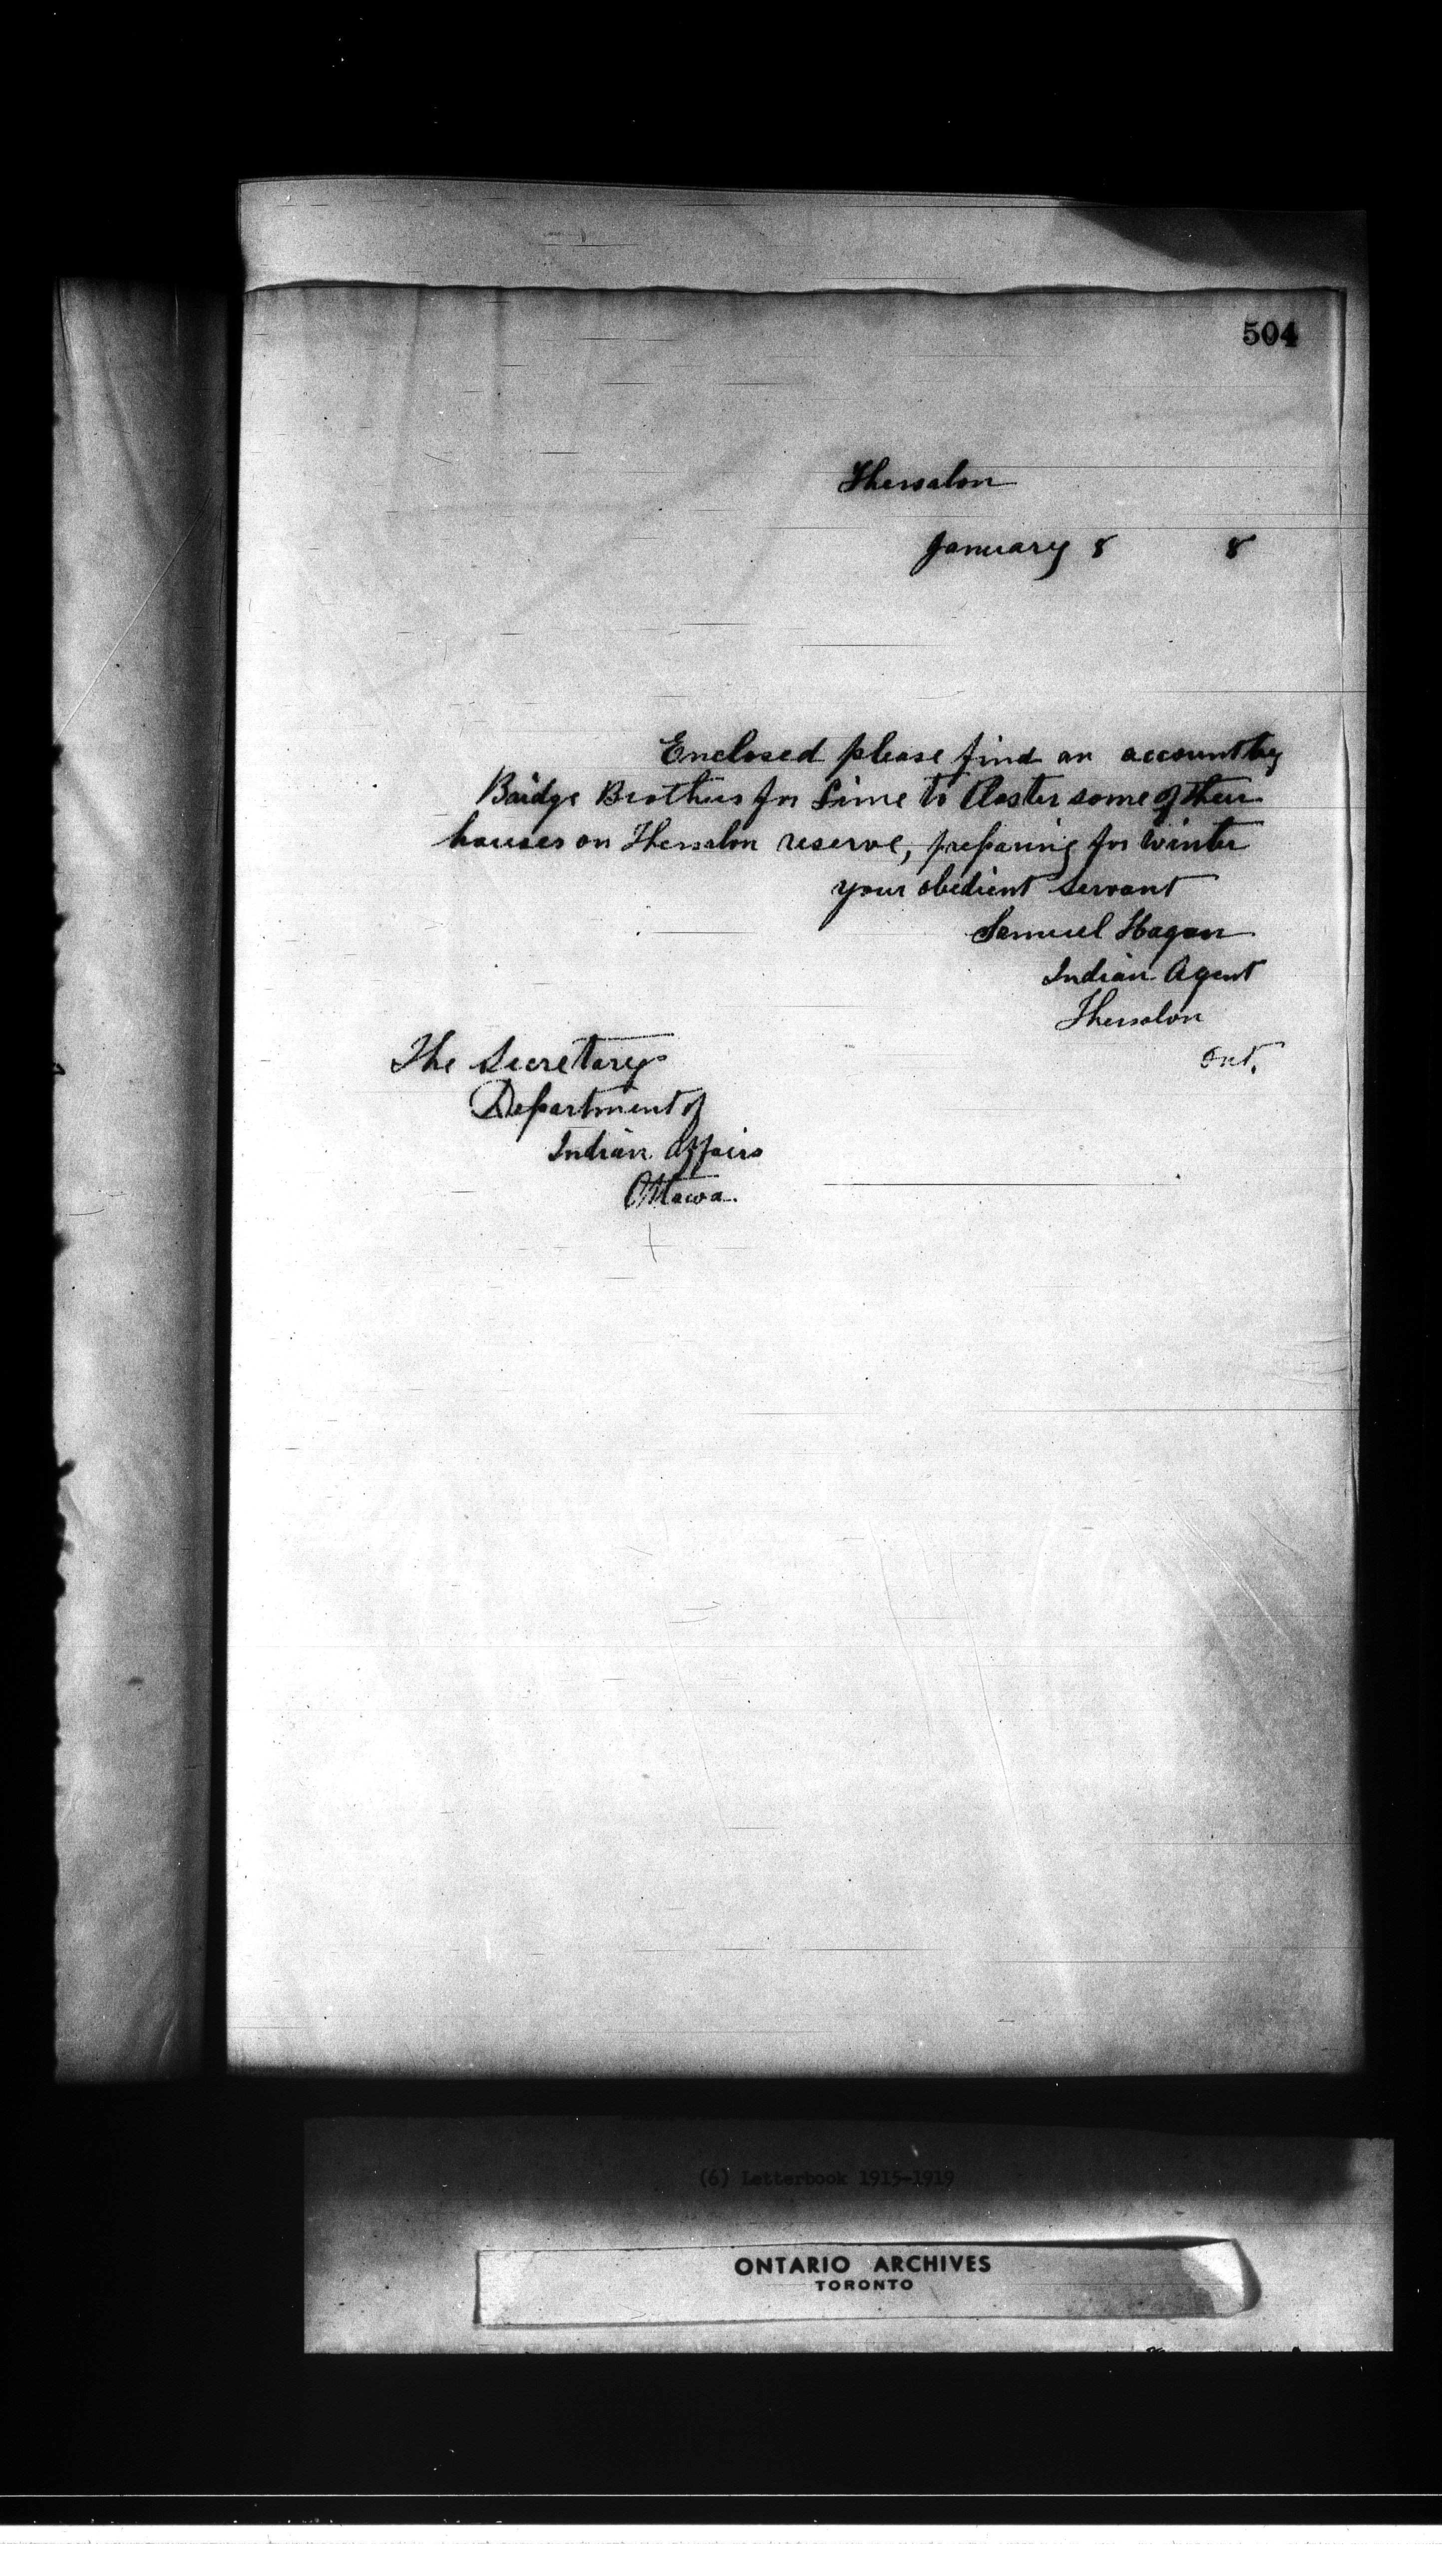 504
Thessalon
January 8 8
Enclosed please find an account by
Bridge Brothers for Lime to Plaster some of their
houses on Thessalon reserve, preparing for winter
your obedient servant
Samuel Hagan
Indian Agent
Thessalon
Ont.
The Secretary
Department of
Indian Affairs
Ottawa.
(6) Letterbook 1915-1919
ONTARIO ARCHIVES
TORONTO